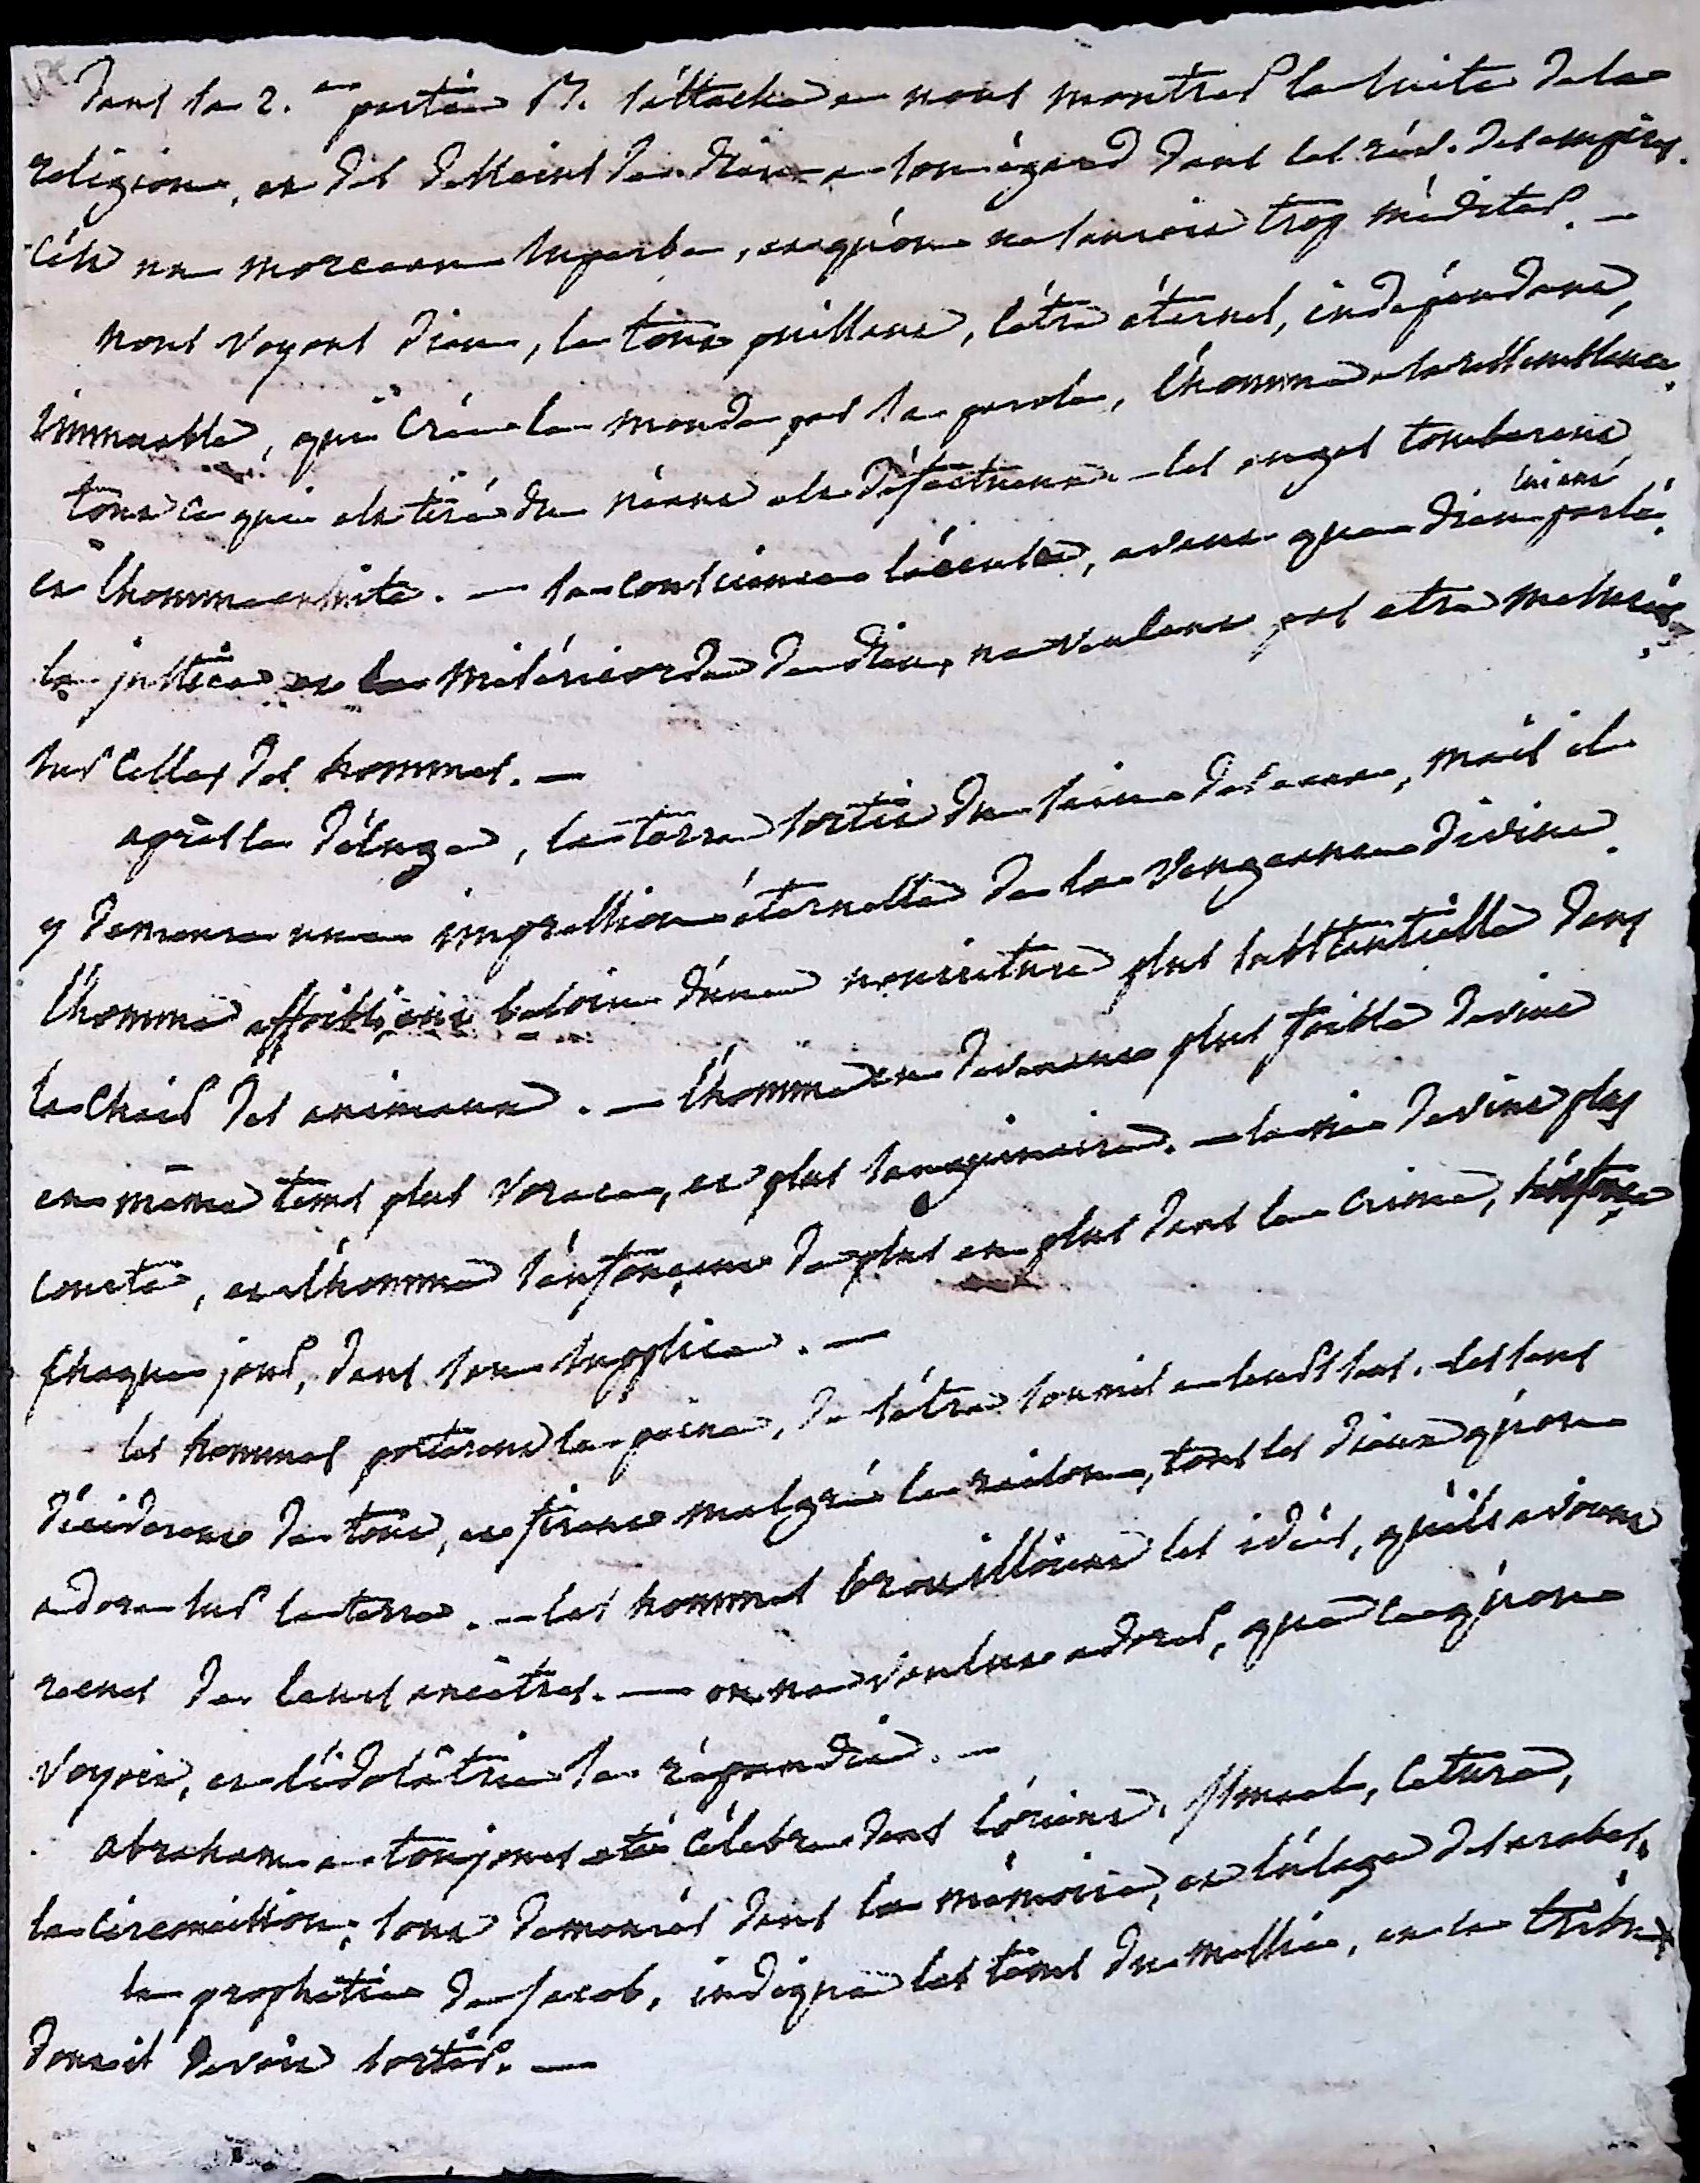 dans sa 2.de partie B. s'attache a nous montrer la suite de la
religion, et des desseins de dieu a son égard dans les rév. des empires.
c'est un morceau superbe, et qu'on ne sauroit trop méditer. —
nous voyons dieu, le tout puissant, l'être éternel, indépendant,
immuable, qui crée le monde par sa parole, l'homme a sa ressemblance.
tout ce qui est tiré du néant est défectueux. — les anges tomberent
et l'homme ensuite. — sa conscience l'accuse, avant que dieu lui ait parlé.
la justice et la miséricorde de dieu, ne veulent pas etre mesurées
sur celles des hommes. —
après le déluge, la terre sortie du sein des eaux, mais il
y demeura une impression éternelle de la vengeance divine.
l'homme affoibli eut besoin d'une nouriture plus substantielle dans
la chair des animaux. — l'homme en devenant plus foible devint
en même tems plus vorace, et plus sanguinaire. — la vie devint plus
courte, et l'homme s'enfonçant de plus en plus dans le crime, s'enfonce
chaque jour, dans son supplice. —
les hommes porterent la peine, de s'être soumis a leurs sens. les sens
déciderent de tout, et firent malgré la raison, tous les dieux qu'on
adora sur la terre. — les hommes brouilloient les idées, qu'ils avoient
recues de leurs ancêtres. — on ne voulut adorer, que ce qu'on
voyoit, et l'idolâtrie se répandit. —
abraham a toujours été célebre dans l'orient. Ismael, Cetura,
la circoncision; sont demeurés dans la mémoire, et l'usage des arabes.
la prophetie de Jacob, indique les tems du messie, et la tribu
dont il devoit sortir. —